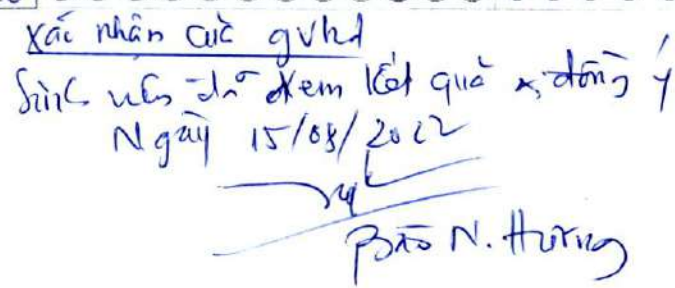 Xác nhận của gvhd
Sinh viên đã xem kết quả & đồng ý
Ngày 15/08/2022
Bảo N. Hương